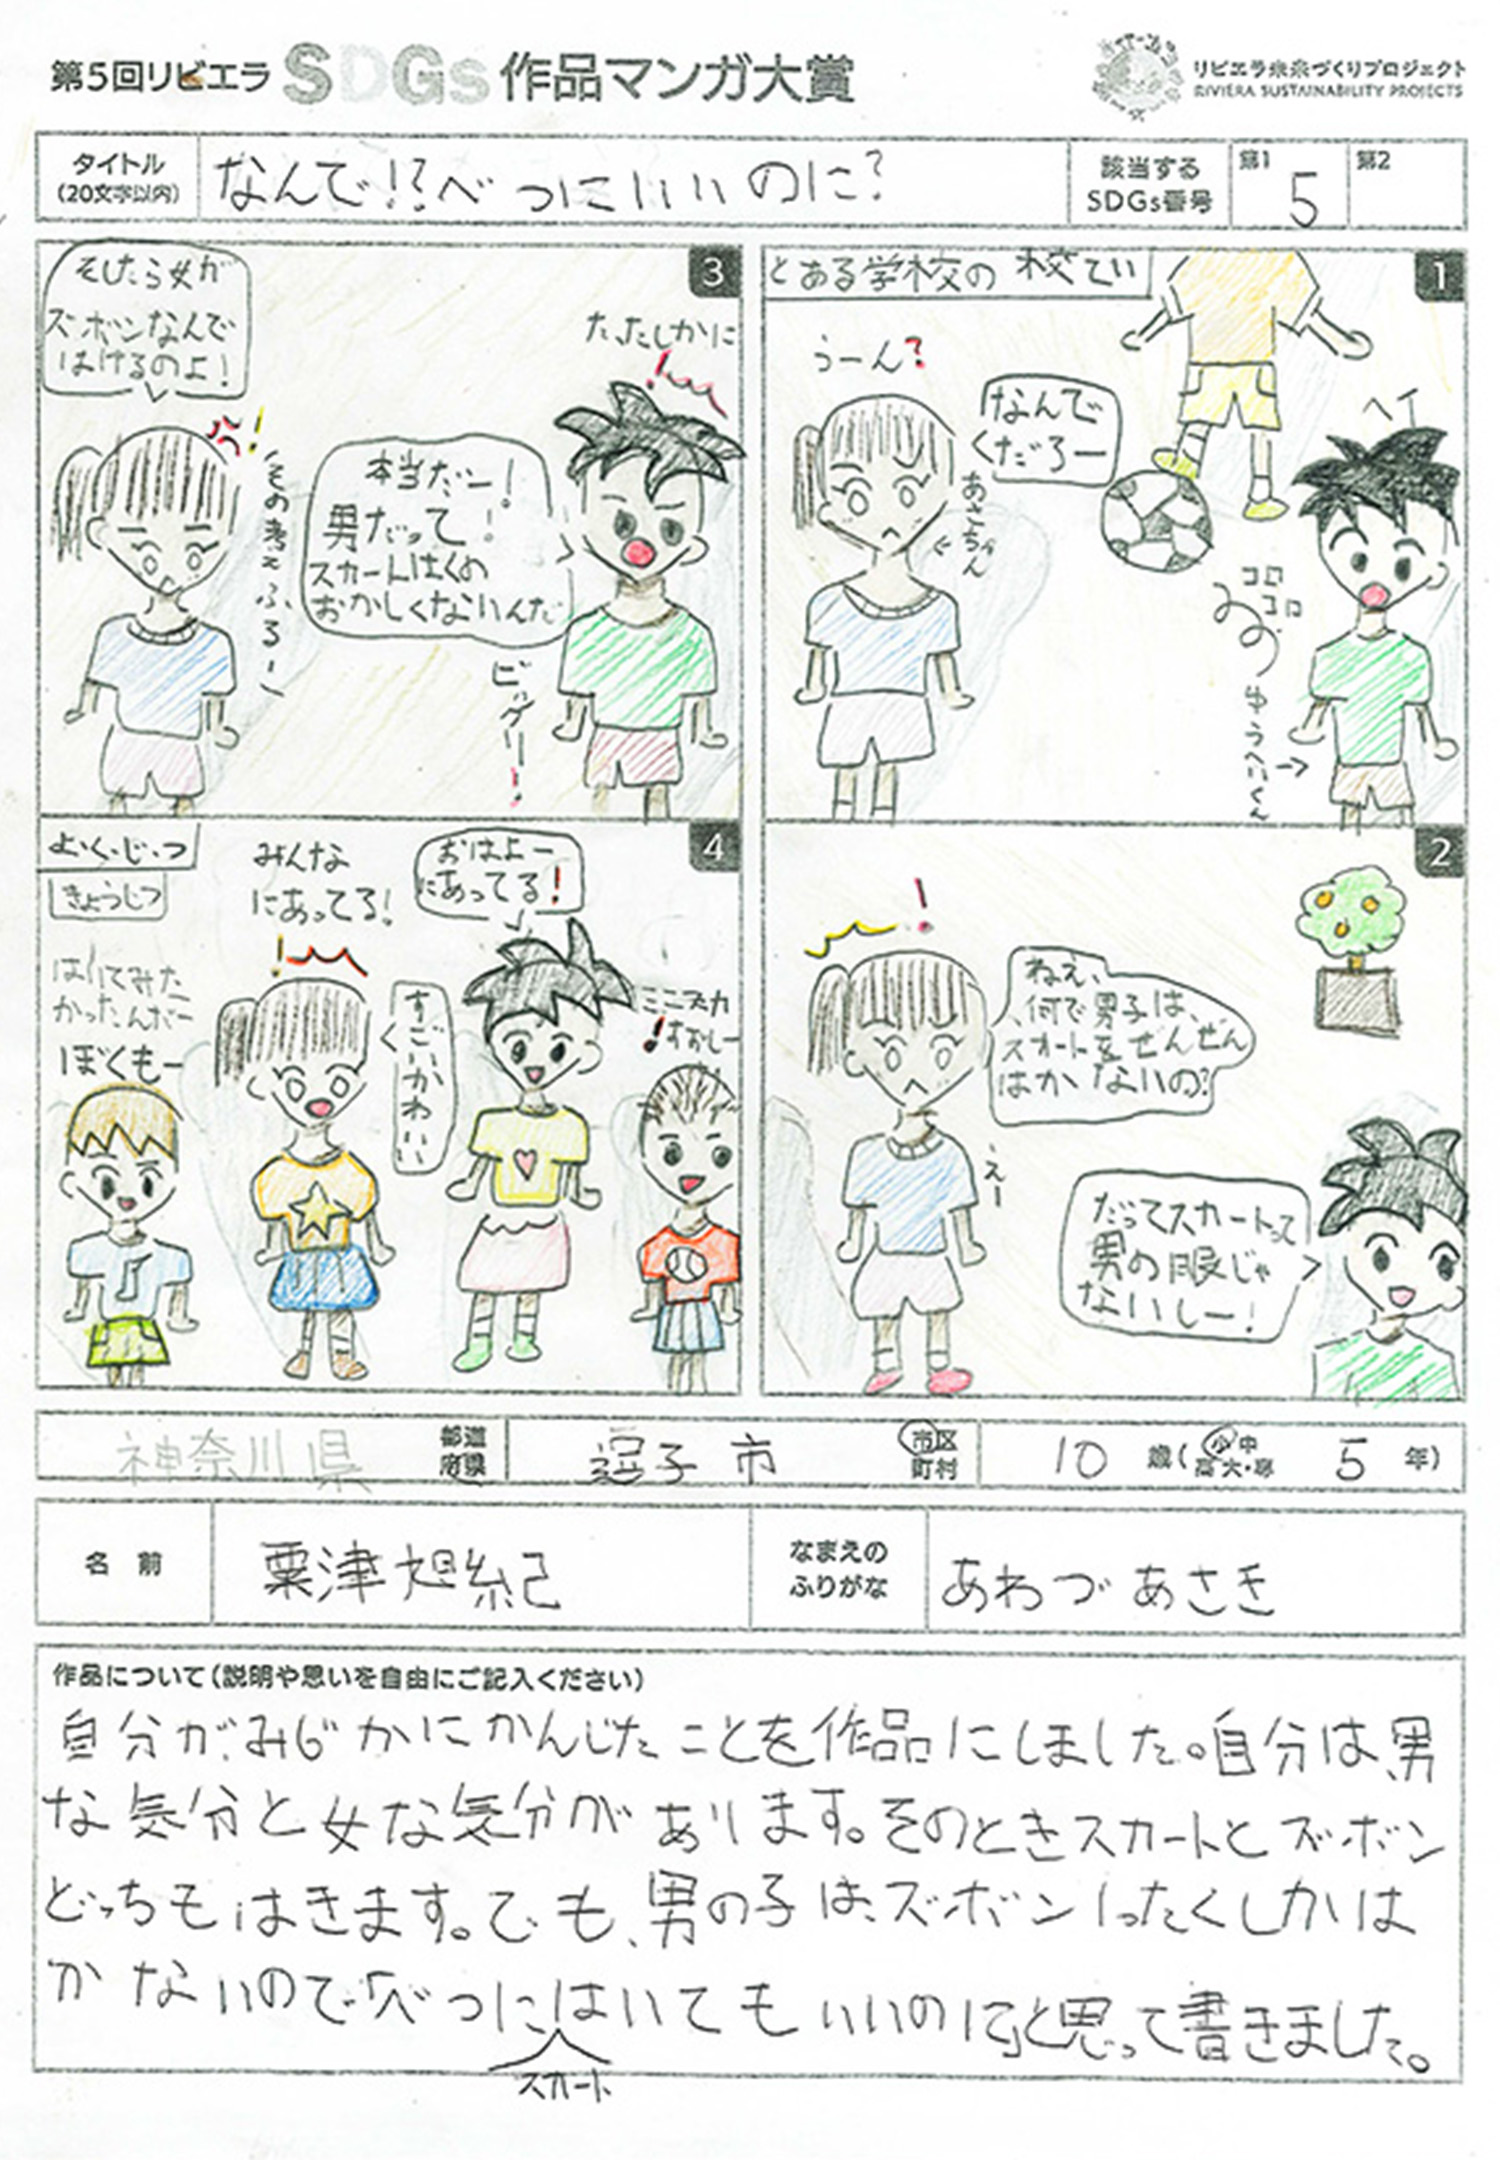 第5回リビエラ SDGs 作品マンガ大賞
リビエラ未来づくりプロジェクト
RIVIERA SUSTAINABILITY PROJECTS
タイトル
(20文字以内)
なんで!?べつにいいのに?
該当する
SDGs番号
第1
5
第2
1
とある学校の校てい
うーん?
なんで
だろー
あさちゃん
ヘイ
コロ
コロ
ゆうへいくん
2
!
ねえ、
何で男子は、
スカートをぜんぜん
はかないの?
えー
だってスカートって
男の服じゃ
ないしー!
3
そしたら女が
ズボンなんで
はけるのよ!
その考えふるー
た、たしかに
!
本当だー!
男だって!
スカートはくの
おかしくないんだ
ビックリー!
4
よ・く・じ・つ
きょうしつ
はいてみた
かったんだー
ぼくもー
みんな
にあってる!
すごいかわいい
おはよー
にあってる!
ミニスカ
すずしー
神奈川県
都道
府県
逗子市
市区
町村
10
歳(小・中
高・大・専
5
年)
名前
粟津旭紀
なまえの
ふりがな
あわづあさき
作品について(説明や思いを自由にご記入ください)
自分がみじかにかんじたことを作品にしました。自分は、男
な気分と女な気分があります。そのときスカートとズボン
どっちもはきます。でも、男の子は、ズボンったくしかは
かないので「べつにはいてもいいのに」と思って書きました。
スカート